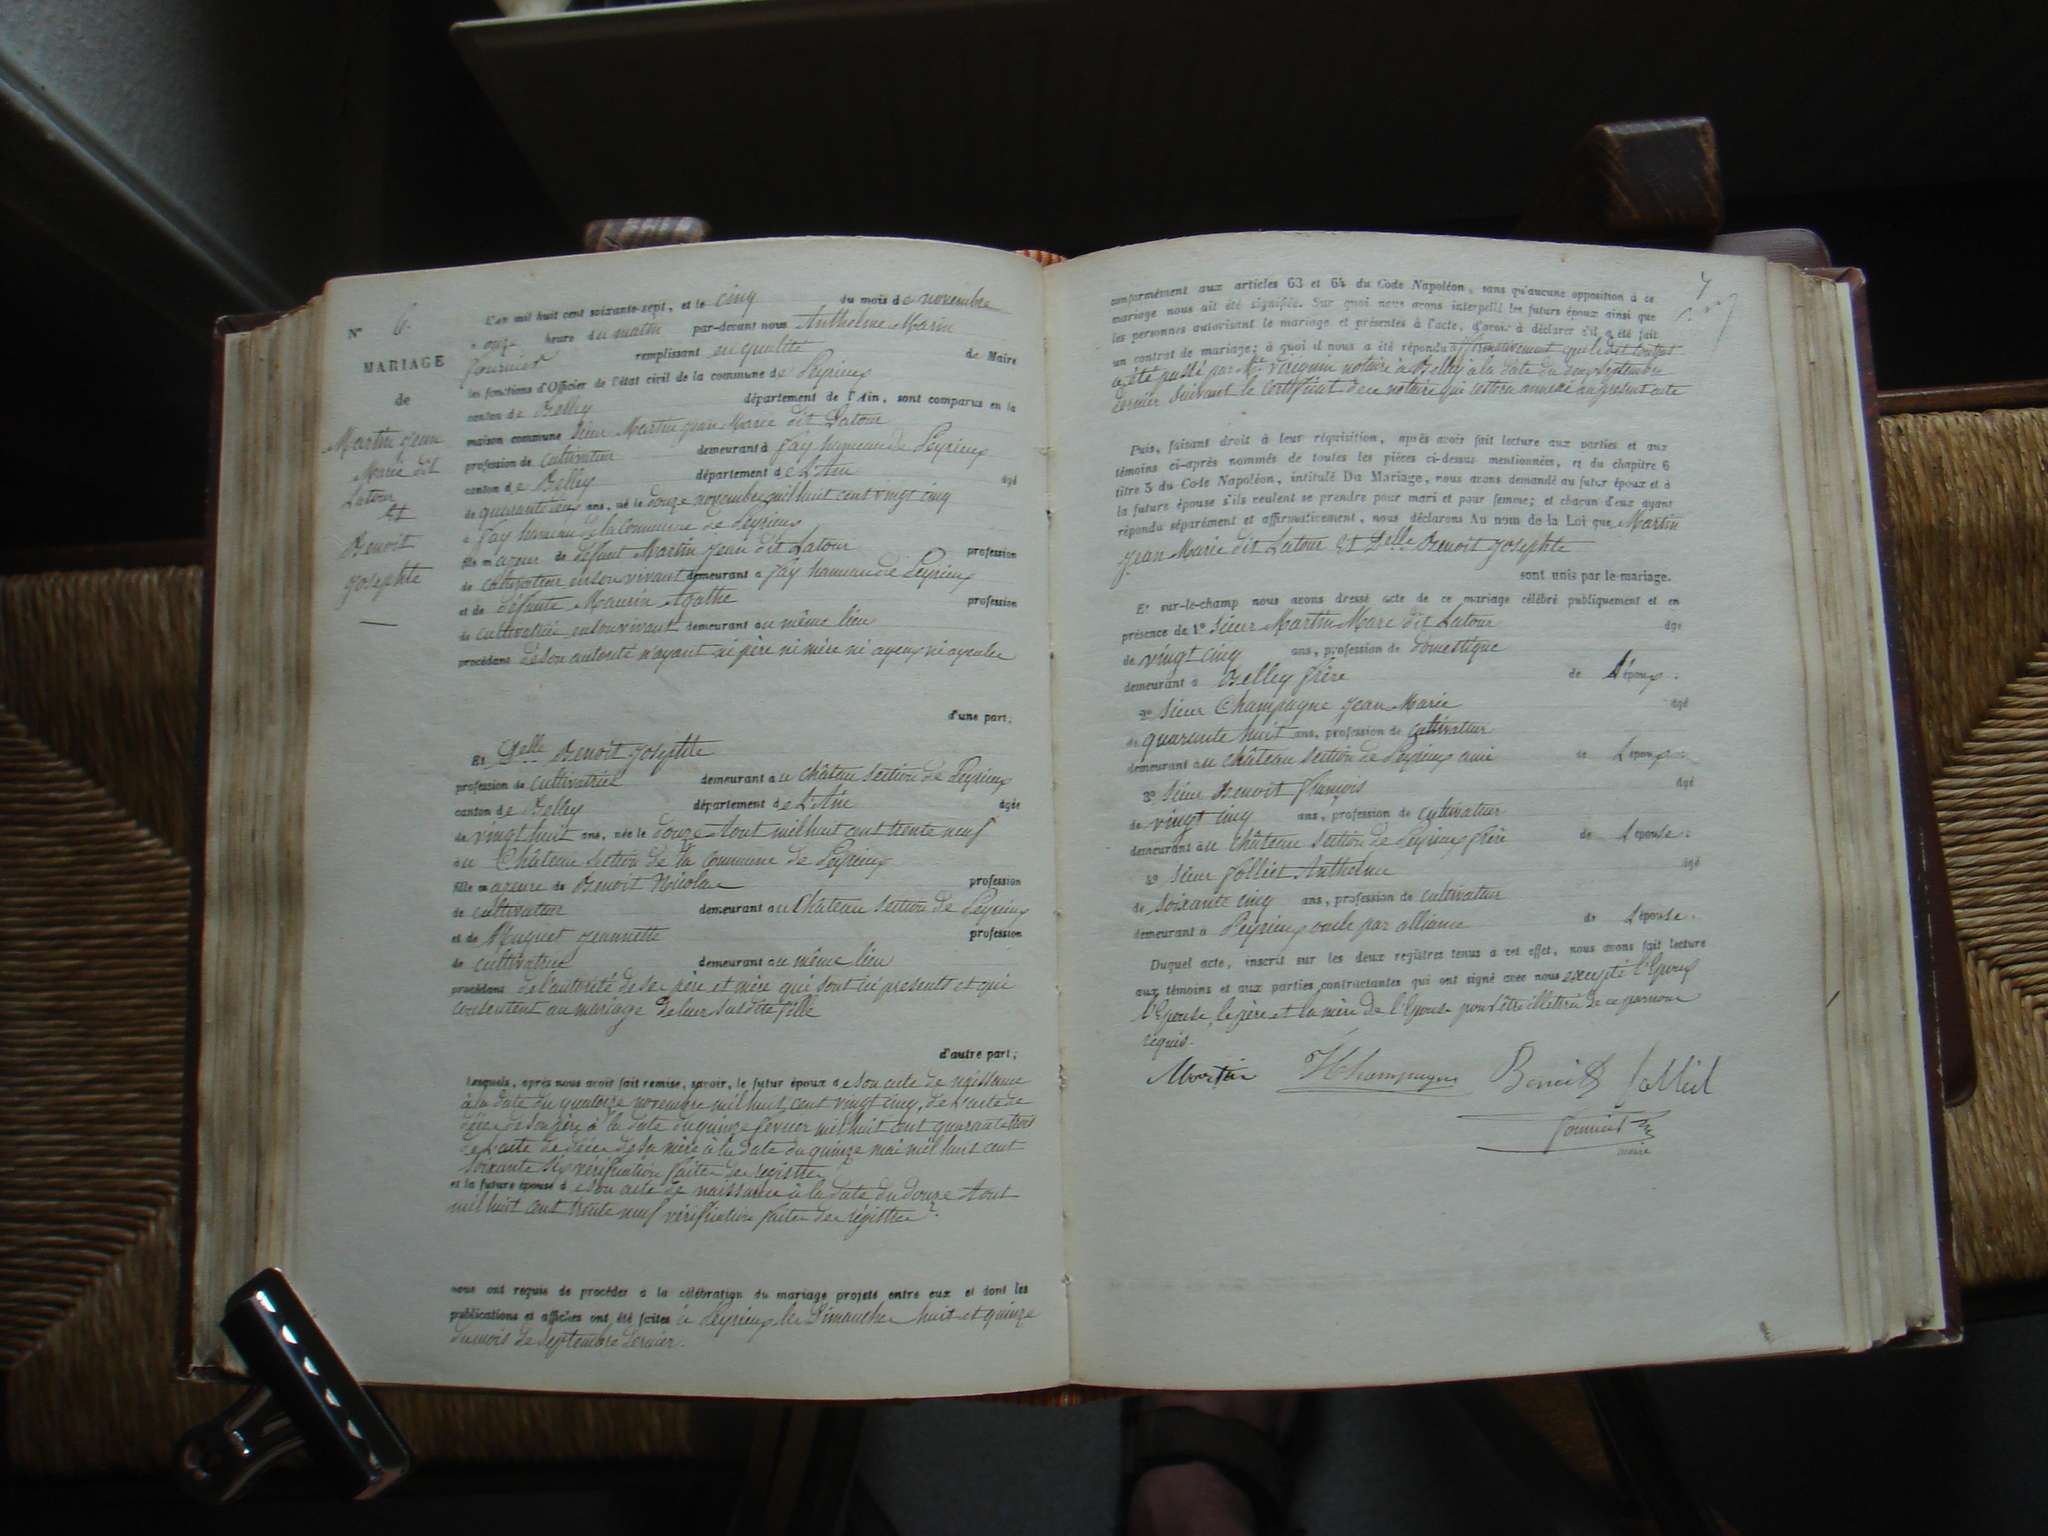 N° 6.
MARIAGE
de
Martin Jean
Marie dit
Latour
Et
Benoit
Josephte
L'an mil huit cent soixante-sept, et le cinq du mois de novembre
à onze heure du matin par-devant nous Anthelme Marin
Fournier remplissant en qualité de Maire
les fonctions d'Officier de l'état civil de la commune de Peyrieux
canton de Belley département de l'Ain, sont comparus en la
maison commune Sieur Martin Jean Marie dit Latour
profession de cultivateur demeurant à Fay hameau de Peyrieux
canton de Belley département de L'Ain âgé
de quarante deux ans, né le douze novembre mil huit cent vingt cinq
à Fay hameau de la commune de Peyrieux
fils majeur de défunt Martin Jean dit Latour profession
de cultivateur en son vivant demeurant à Fay hameau de Peyrieux
et de défunte Maurin Agathe profession
de cultivatrice en son vivant demeurant au même lieu
procédant de son autorité n'ayant ni père ni mère ni ayeux ni ayeules
d'une part;
Et Delle Benoit Josephte
profession de cultivatrice demeurant au château section de Peyrieux
canton de Belley département de L'Ain âgée
de vingt huit ans, née le douze Aout mil huit cent trente neuf
au Château section de la commune de Peyrieux
fille majeure de Benoit Nicolas profession
de cultivateur demeurant au Château section de Peyrieux
et de Huguet Jeannette profession
de cultivatrice demeurant au même lieu
procédant de l'autorité de ses père et mère qui sont ici présents et qui
consentent au mariage de leur susdite fille
d'autre part;
Lesquels, après nous avoir fait remise, savoir, le futur époux de son acte de naissance
à la date du quatorze novembre mil huit cent vingt cinq, de l'acte de
décès de son père à la date du quinze février mil huit cent quarante trois
de l'acte de décès de sa mère à la date du quinze mai mil huit cent
soixante six vérification faite des registres
et la future épouse de son acte de naissance à la date du douze Aout
mil huit cent trente neuf vérification faite des régistres
nous ont requis de procéder à la célébration du mariage projeté entre eux et dont les
publications et affiches ont été faites à Peyrieux les Dimanches huit et quinze
du mois de septembre dernier.
7
conformément aux articles 63 et 64 du Code Napoléon, sans qu'aucune opposition à ce
mariage nous ait été signifiée. Sur quoi nous avons interpellé les futurs époux ainsi que
les personnes autorisant le mariage et présentes à l'acte, d'avoir à déclarer s'il a été fait
un contrat de mariage; à quoi il nous a été répondu affirmativement que le dit contrat
a été passé par Me notaire à Belley à la date du deux septembre
dernier suivant le certificat de ce notaire qui restera annexé au présent acte
Puis, faisant droit à leur réquisition, après avoir fait lecture aux parties et aux
témoins ci-après nommés de toutes les pièces ci-dessus mentionnées, et du chapitre 6
titre 5 du Code Napoléon, intitulé Du Mariage, nous avons demandé au futur époux et à
la future épouse s'ils veulent se prendre pour mari et pour femme; et chacun d'eux ayant
répondu séparément et affirmativement, nous déclarons Au nom de la Loi que Martin
Jean Marie dit Latour Et Delle Benoit Josephte
sont unis par le mariage.
Et sur-le-champ nous avons dressé acte de ce mariage célébré publiquement et en
présence de 1° Sieur Martin Marc dit Latour âgé
de vingt cinq ans, profession de domestique
demeurant à Belley frère de l'époux.
2° Sieur Champagne Jean Marie âgé
de quarante huit ans, profession de cultivateur
demeurant au château section de Peyrieux ami de l'époux.
3° Sieur Benoit François âgé
de vingt cinq ans, profession de cultivateur
demeurant au château section de Peyrieux frère de l'épouse.
4° Sieur Jolliet Anthelme âgé
de soixante cinq ans, profession de cultivateur
demeurant à Peyrieux oncle par alliance de l'épouse.
Duquel acte, inscrit sur les deux registres tenus à cet effet, nous avons fait lecture
aux témoins et aux parties contractantes qui ont signé avec nous excepté l'Epoux
l'Epouse, le père et la mère de l'Epouse pour être illettrés de ce par nous
requis.
Martin Champagne Benoit Jolliet
Fournier
maire